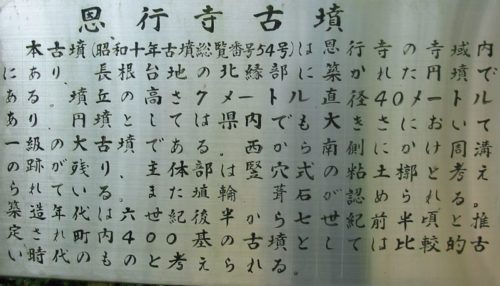 恩行寺古墳
本古墳(昭和十年古墳総覧番号54号)は恩行寺の寺域内
にあり。長根台地の北縁部に築かれた円墳で
ある。墳丘高さ7メートル直径40メートル
あり、円墳としては県内でも大におい て
一級の大古墳である。西から南側にかけて周溝
の跡が残り主体部は竪穴式粘土槨と考え
られている。また埴輪 葺石も認められる。
築造年代は六世紀後半から七世紀前半頃と推
定され町内の400基の古墳としては比較的古
い時代のものと考えられる。